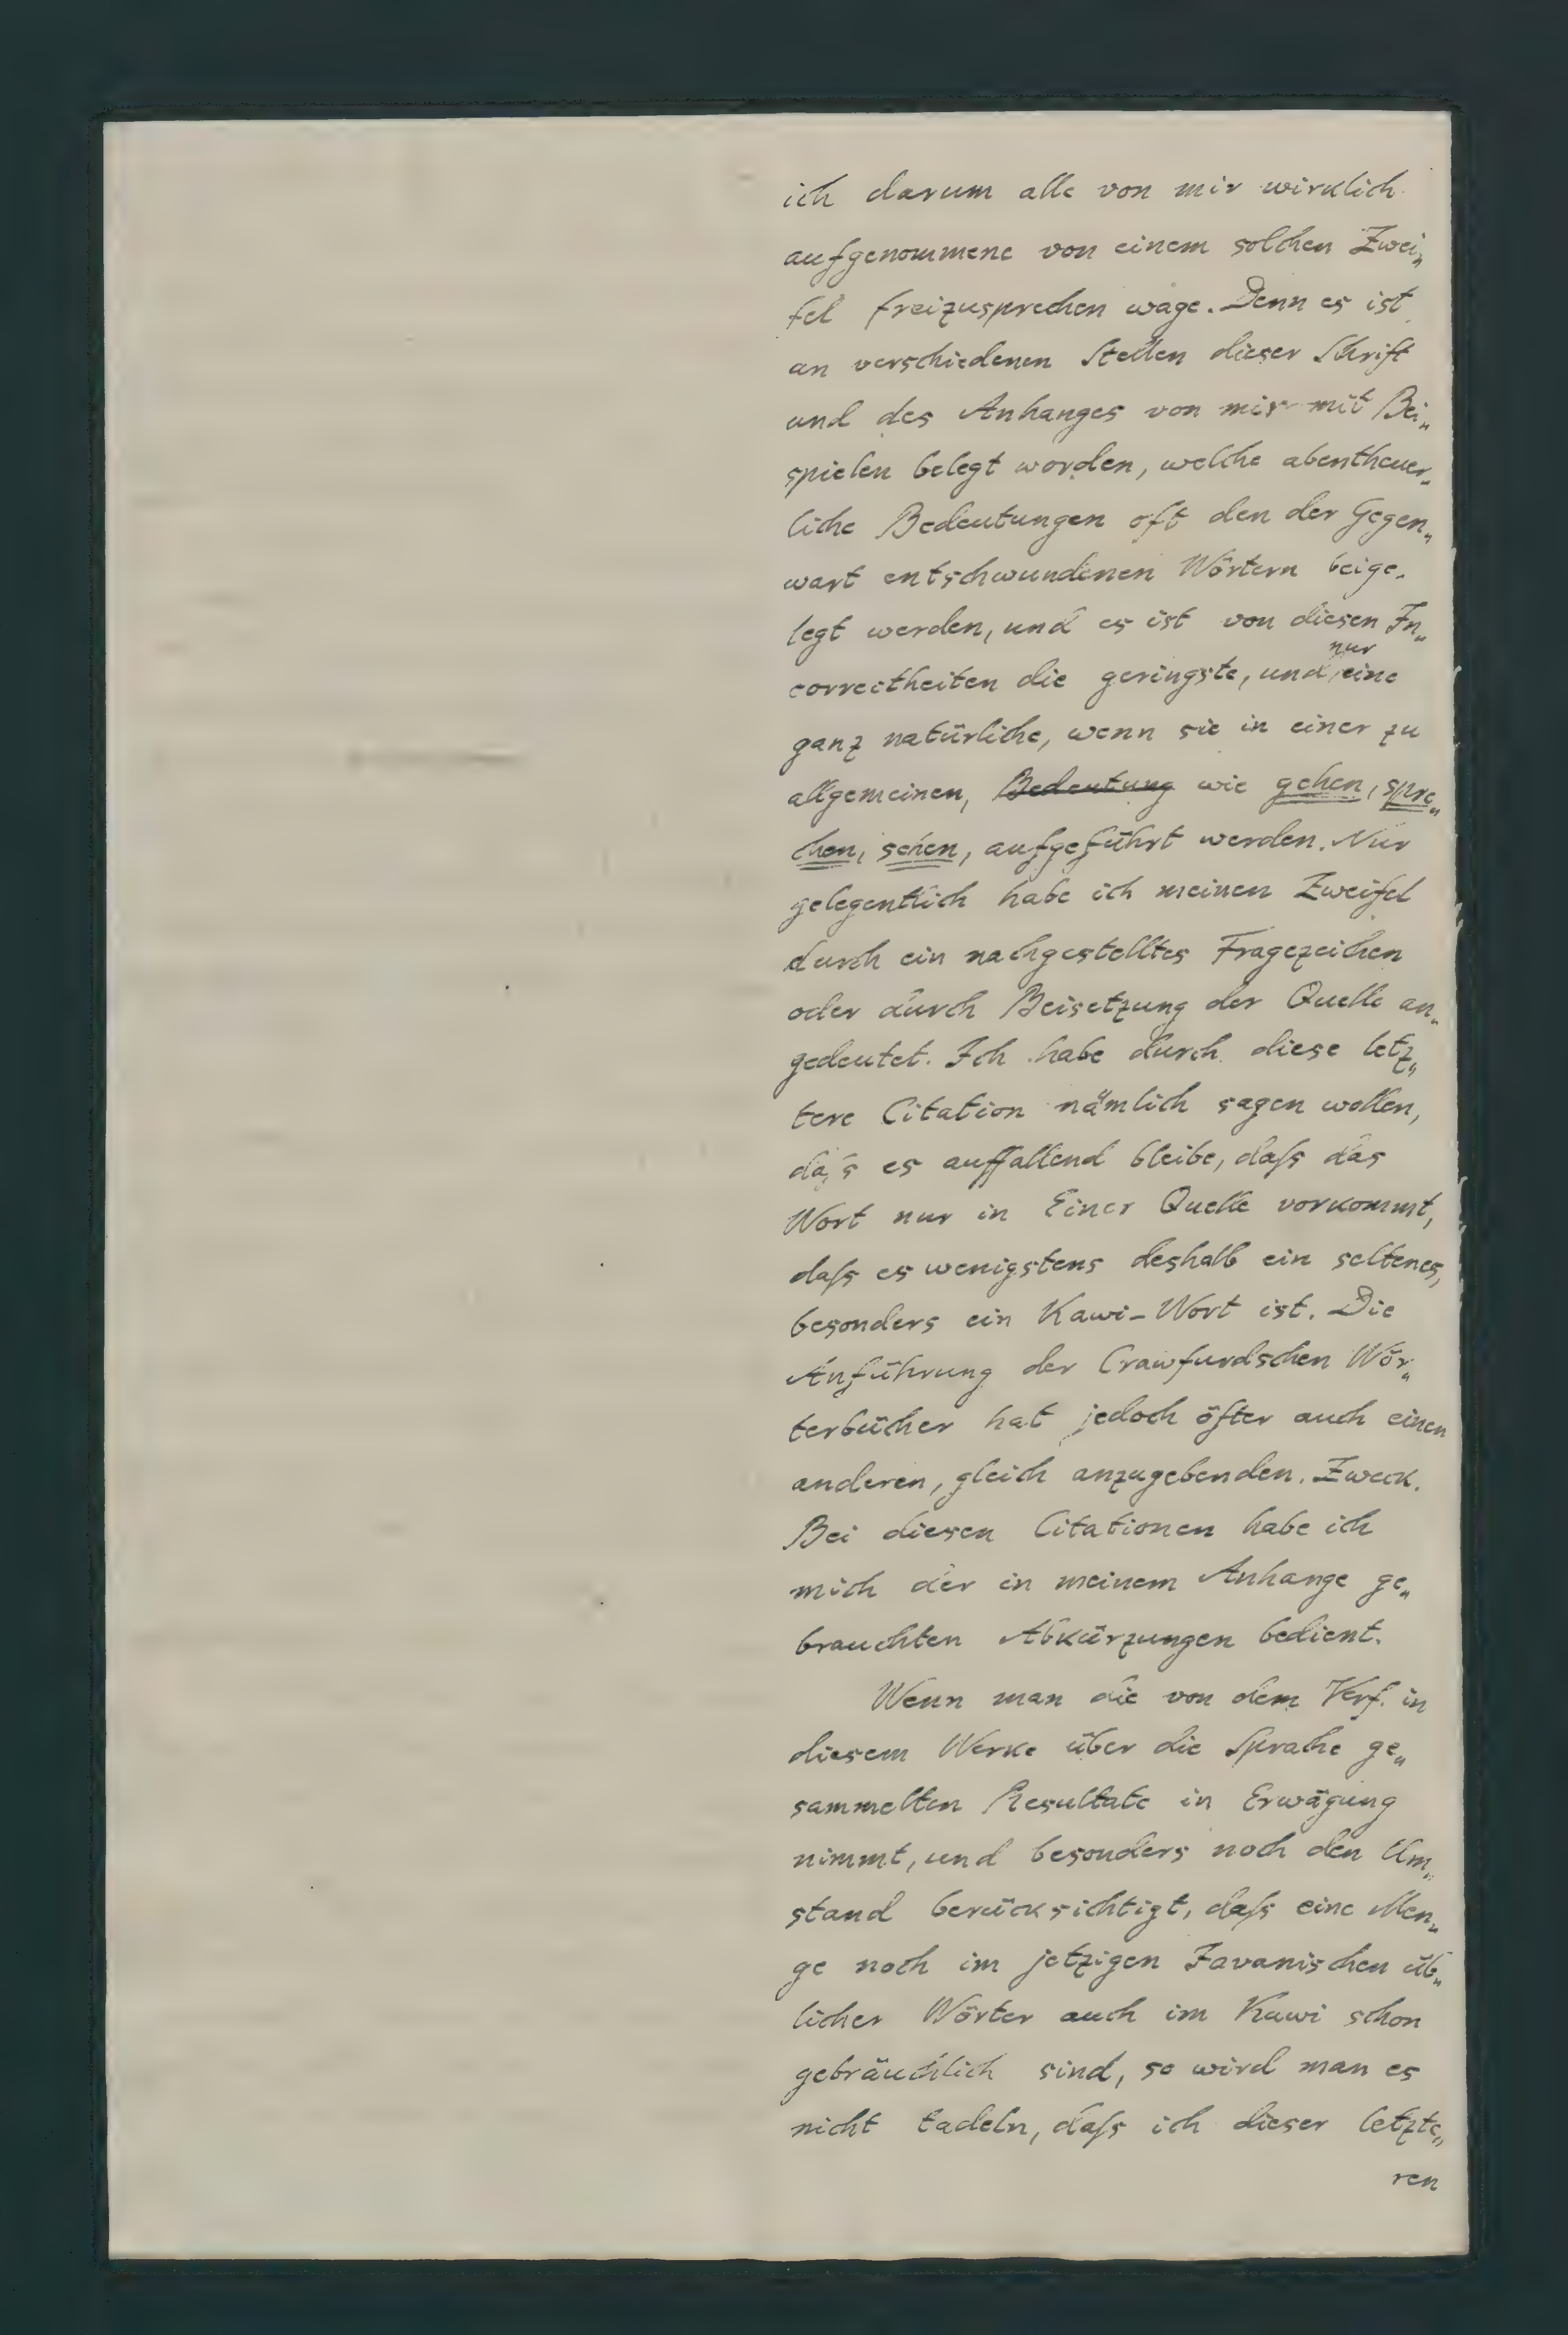 ich darum alle von mir wirklich
aufgenommene von einem solchen Zwei„
fel freizusprechen wage. Denn es ist
an verschiedenen Stellen dieser Schrift
und des Anhanges von mir mit Bei„
spielen belegt worden, welche abentheuer„
liche Bedeutungen oft den der Gegen„
wart entschwundenen Wörtern beige„
legt werden, und es ist von diesen In„
nur
correctheiten die geringste, und eine
ganz natürliche, wenn sie in einer zu
allgemeinen, Bedeutung wie gehen, spre„
chen, sehen, aufgeführt werden. Nur
gelegentlich habe ich meinen Zweifel
durch ein nachgestelltes Fragezeichen
oder durch Beisetzung der Quelle an„
gedeutet. Ich habe durch diese letz„
tere Citation nämlich sagen wollen,
daſs es auffallend bleibe, daſs das
Wort nur in Einer Quelle vorkommt,
daſs es wenigstens deshalb ein seltenes,
besonders ein Kawi-Wort ist. Die
Anführung der Crawfurdschen Wör„
terbücher hat jedoch öfter auch einen
anderen, gleich anzugebenden, Zweck.
Bei diesen Citationen habe ich
mich der in meinem Anhange ge„
brauchten Abkürzungen bedient.
Wenn man die von dem Verf. in
diesem Werke über die Sprache ge„
sammelten Resultate in Erwägung
nimmt, und besonders noch den Um„
stand berücksichtigt, daſs eine Men„
ge noch im jetzigen Javanischen üb„
licher Wörter auch im Kawi schon
gebräuchlich sind, so wird man es
nicht tadeln, daſs ich dieser letzte„
ren